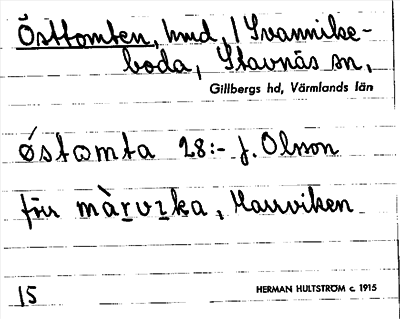 Östtomten, hmd, / Svannike-
boda, Stavnäs sn,
Gillbergs hd, Värmlands län
østɷmta 28:- J. Olsson
för màrvɪka, Marrviken
15 HERMAN HULTSTRÖM c. 1915